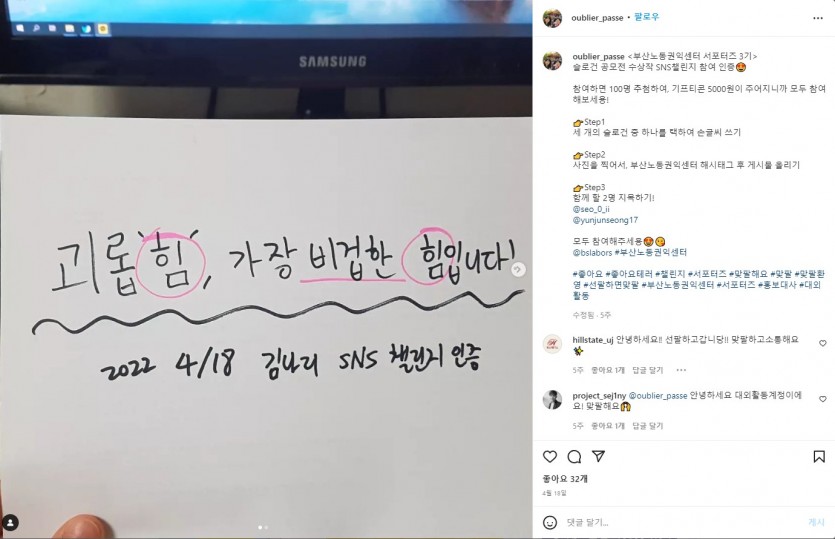 SAMSUNG
괴롭힘, 가장 비겁한 힘입니다!
2022 4/18 김나리 SNS 챌린지 인증
oublier_passe • 팔로우
oublier_passe <부산노동권익센터 서포터즈 3기>
슬로건 공모전 수상작 SNS챌린지 참여 인증😍
참여하면 100명 추첨하여, 기프티콘 5000원이 주어지니까 모두 참여
해보세용!
👉Step1
세 개의 슬로건 중 하나를 택하여 손글씨 쓰기
👉Step2
사진을 찍어서, 부산노동권익센터 해시태그 후 게시물 올리기
👉Step3
함께 할 2명 지목하기!
@seo_0_ii
@yunjunseong17
모두 참여해주세용😍😘
@bslabors #부산노동권익센터
#좋아요 #좋아요테러 #챌린지 #서포터즈 #맞팔해요 #맞팔 #맞팔환
영 #선팔하면맞팔 #부산노동권익센터 #서포터즈 #홍보대사 #대외
활동
수정됨 · 5주
hillstate_uj 안녕하세요!! 선팔하고갑니당!! 맞팔하고소통해요
✨
5주 좋아요 1개 답글 달기 •••
project_sej1ny @oublier_passe 안녕하세요 대외활동계정이에
요! 맞팔해요🙆
5주 좋아요 1개 답글 달기
좋아요 32개
4월 18일
댓글 달기...
게시